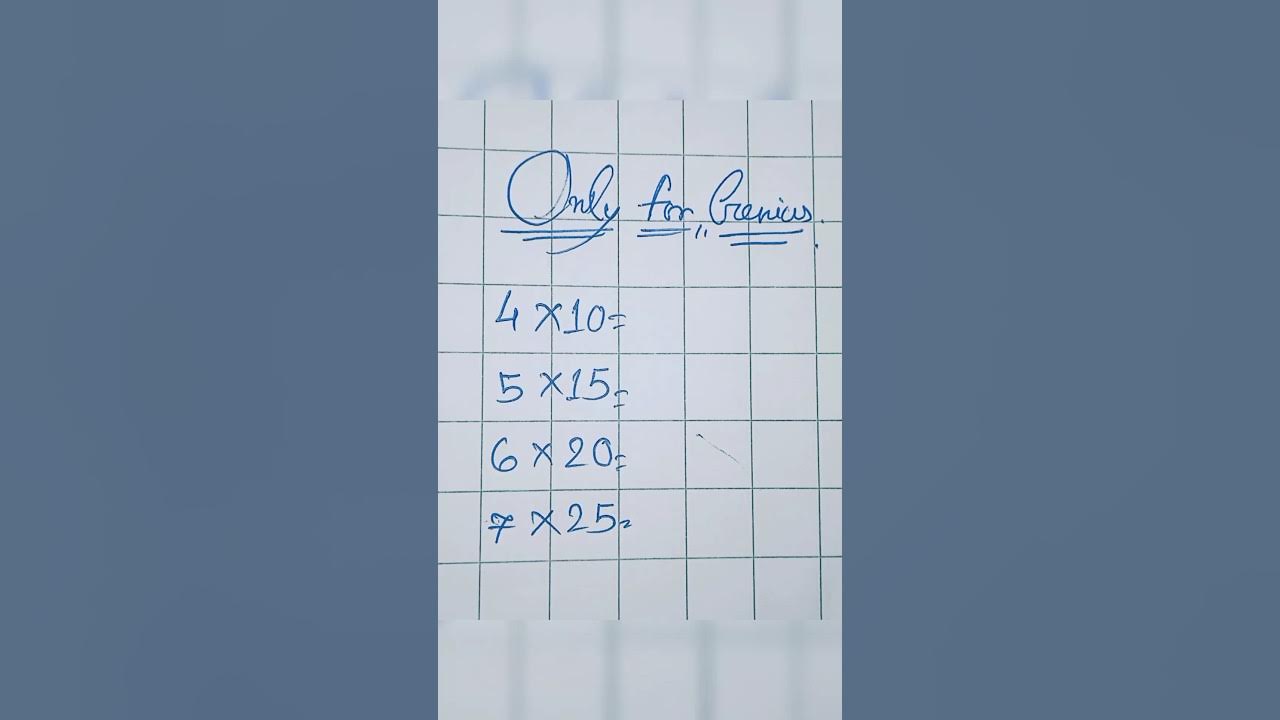 Only for Genius.
4 × 10 =
5 × 15 =
6 × 20 =
7 × 25 =